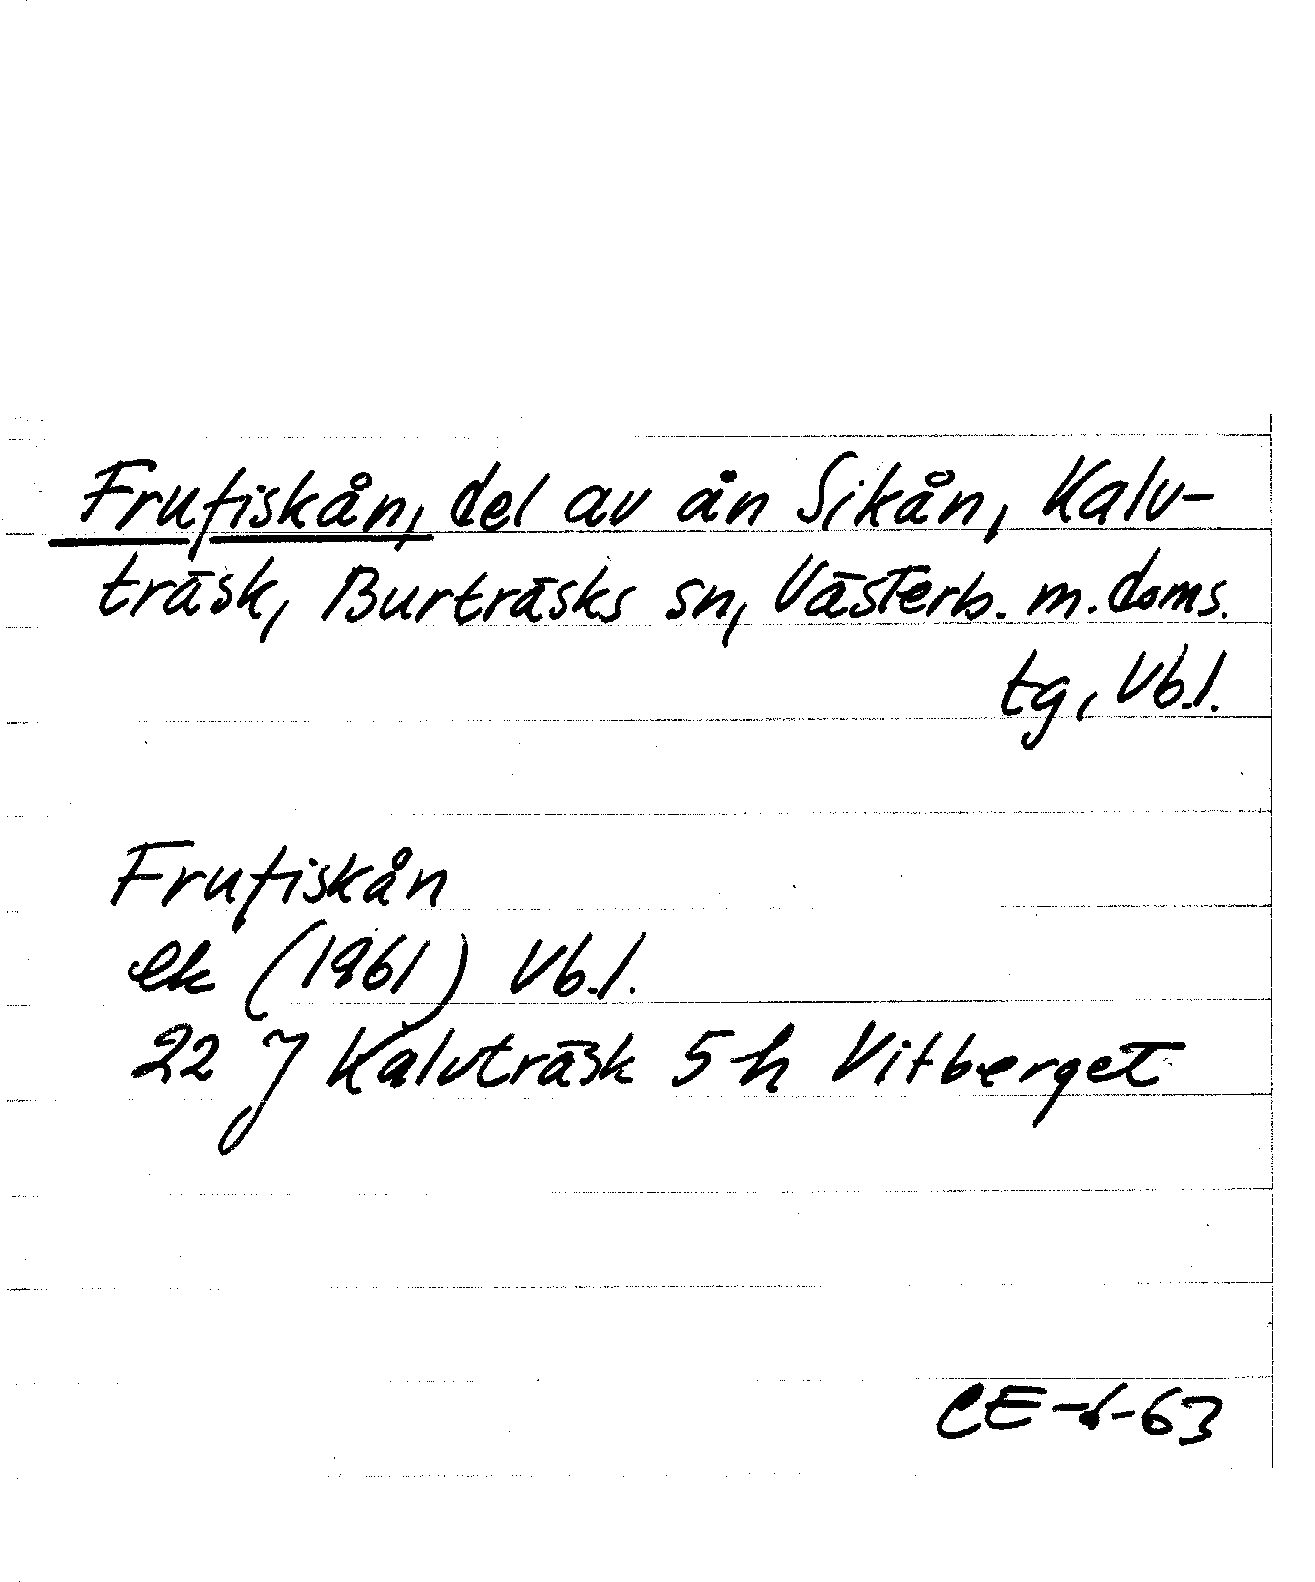 Frufiskån, del av ån Sikån, Kalv-
träsk, Burträsks sn, Västerb. m. doms.
tg, Vb.l.
Frufiskån
ek (1961) Vb.l.
22 J Kalvträsk 5 h Vitberget
CE-6-63